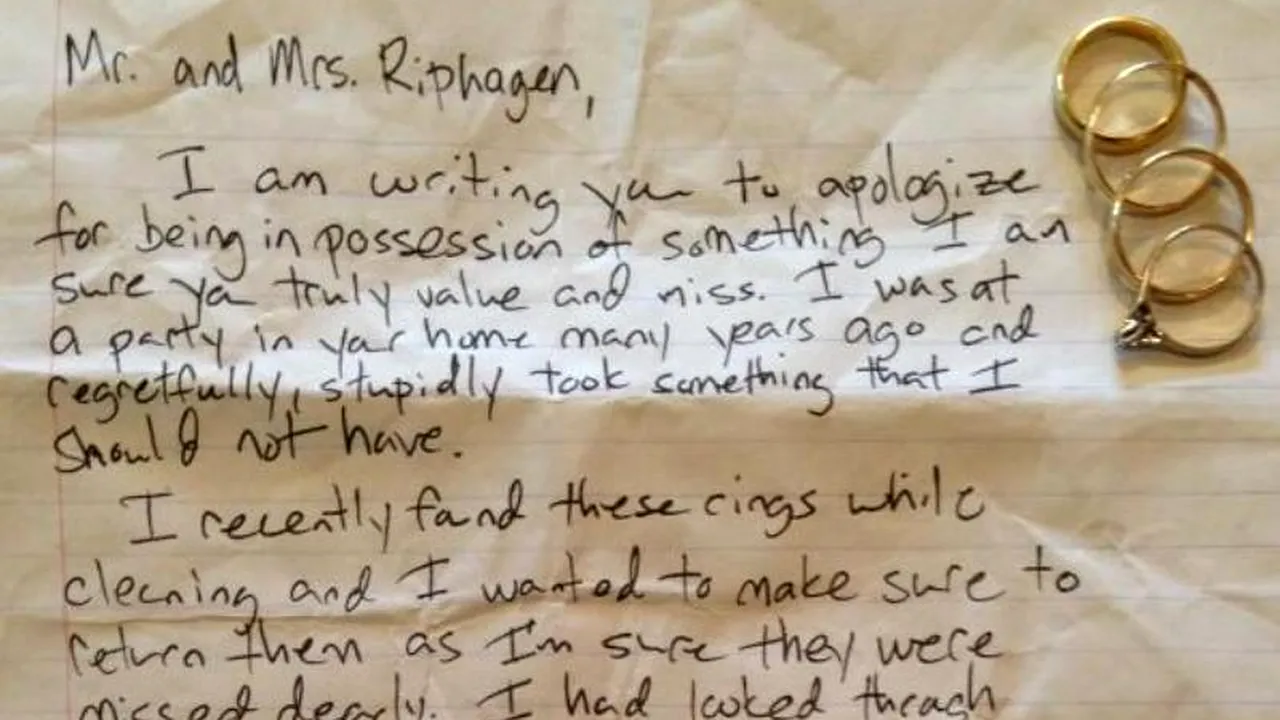 Mr. and Mrs. Riphagen,
I am writing you to apologize
for being in possession of something I am
sure you truly value and miss. I was at
a party in your home many years ago and
regretfully, stupidly took something that I
should not have.
I recently found these rings while
cleaning and I wanted to make sure to
return them as I'm sure they were
missed dearly. I had looked through